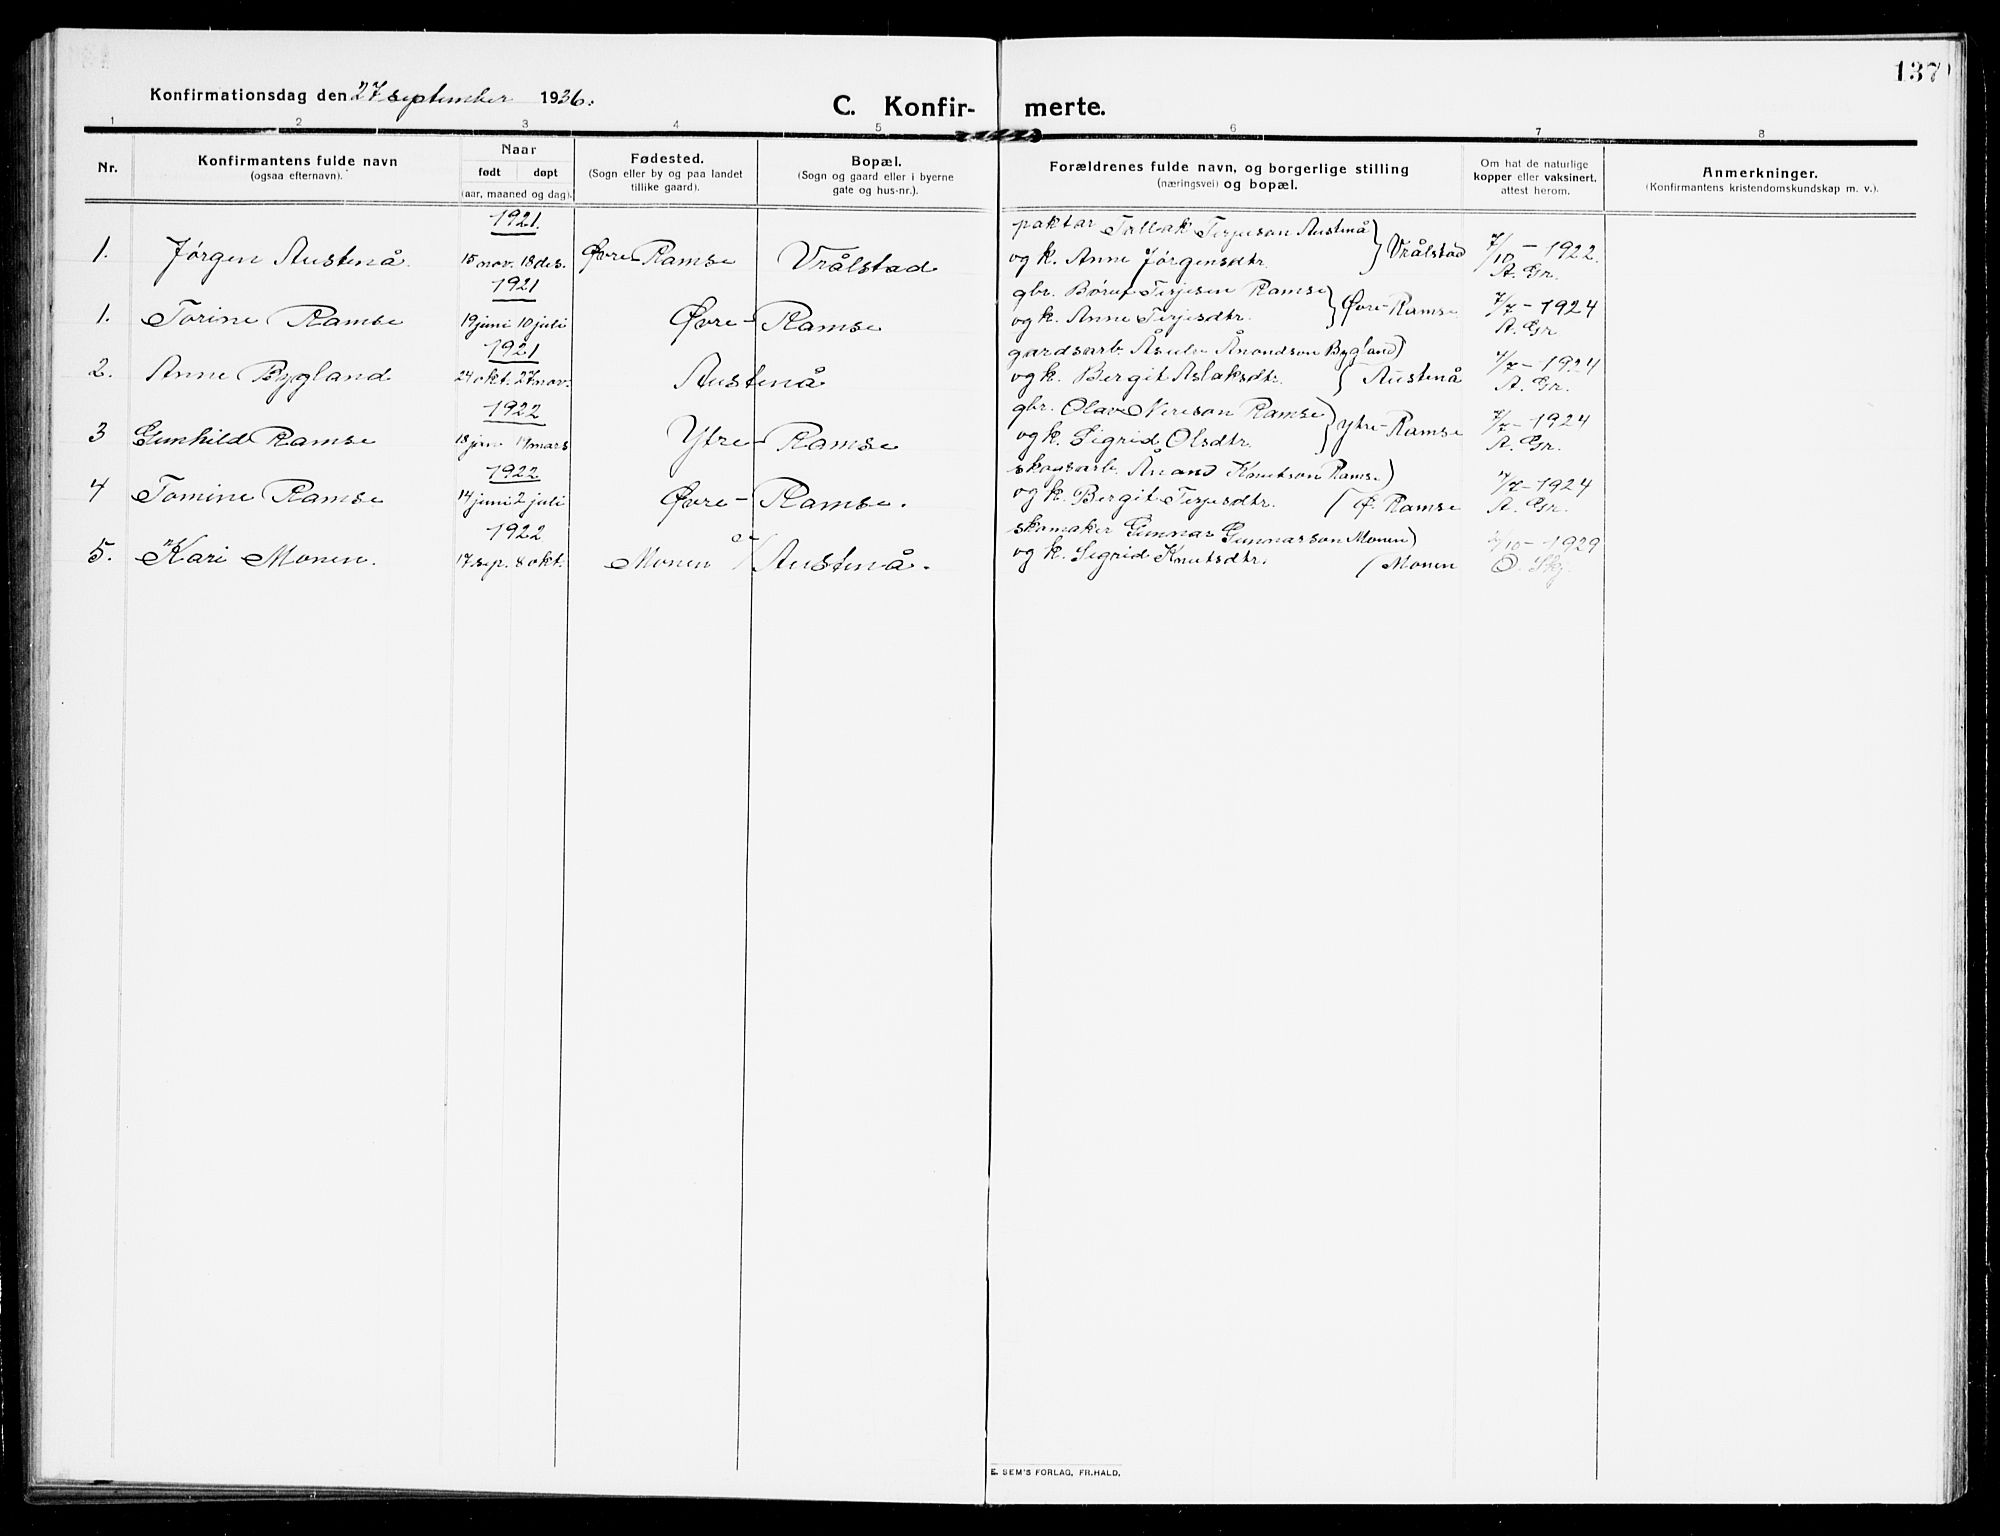 137
Konfirmationsdag den 27 september 1936.
C. Konfir- merte.
1 2 3 4 5 6 7 8
Nr.
Konfirmantens fulde navn
(ogsaa efternavn).
Naar
født døpt
(aar, maaned og dag).
Fødested.
(Sogn eller by og paa landet
tillike gaard).
Bopæl.
(Sogn og gaard eller i byerne
gate og hus-nr.).
Forældrenes fulde navn, og borgerlige stilling
(næringsvei) og bopæl.
Om hat de naturlige
kopper eller vaksinert,
attest herom.
Anmerkninger.
(Konfirmantens kristendomskundskap m. v.).
1921.
1. Jørgen Austenå. 15 nov. 18 des. Øvre Ramse Vrålstad
paktar Tallak Terjeson Austenå
og k. Anne Jørgensdtr. Vrålstad
7/10 - 1922.
A. Gr.
1921
1. Torine Ramse 19 juni 10 juli Øvre - Ramse
gbr. Terjesen Ramse
og k. Anne Terjesdtr. Øvre-Ramse
7/7 - 1924
A. Gr
1921
2. Anne Bygland 24 okt. 27 nov. Austenå
gardsarb. Ånondson Bygland
og k. Bergit Aslaksdtr. Austenå
7/7 - 1924
A. Gr.
1922
3 Gunhild Ramse mars Ytre - Ramse
gbr. Olav Ramse
og k. Sigrid Olsdtr. Ytre-Ramse
7/7 - 1924
A. Gr.
1922
4 Tomine Ramse 14 juni 2 juli Øvre - Ramse.
skogsarb. Ånond Knutson Ramse
og k. Bergit Terjesdtr. Ø. Ramse
7/7 - 1924
A. Gr.
1922
5. Kari Monen. 17 sep. 8 okt. Monen Austenå.
skomaker Gunnar Gunnarson Monen
og k. Sigrid Knutsdtr. Monen
/10 - 1929
O. Skj.
E. SEM'S FORLAG, FR.HALD.